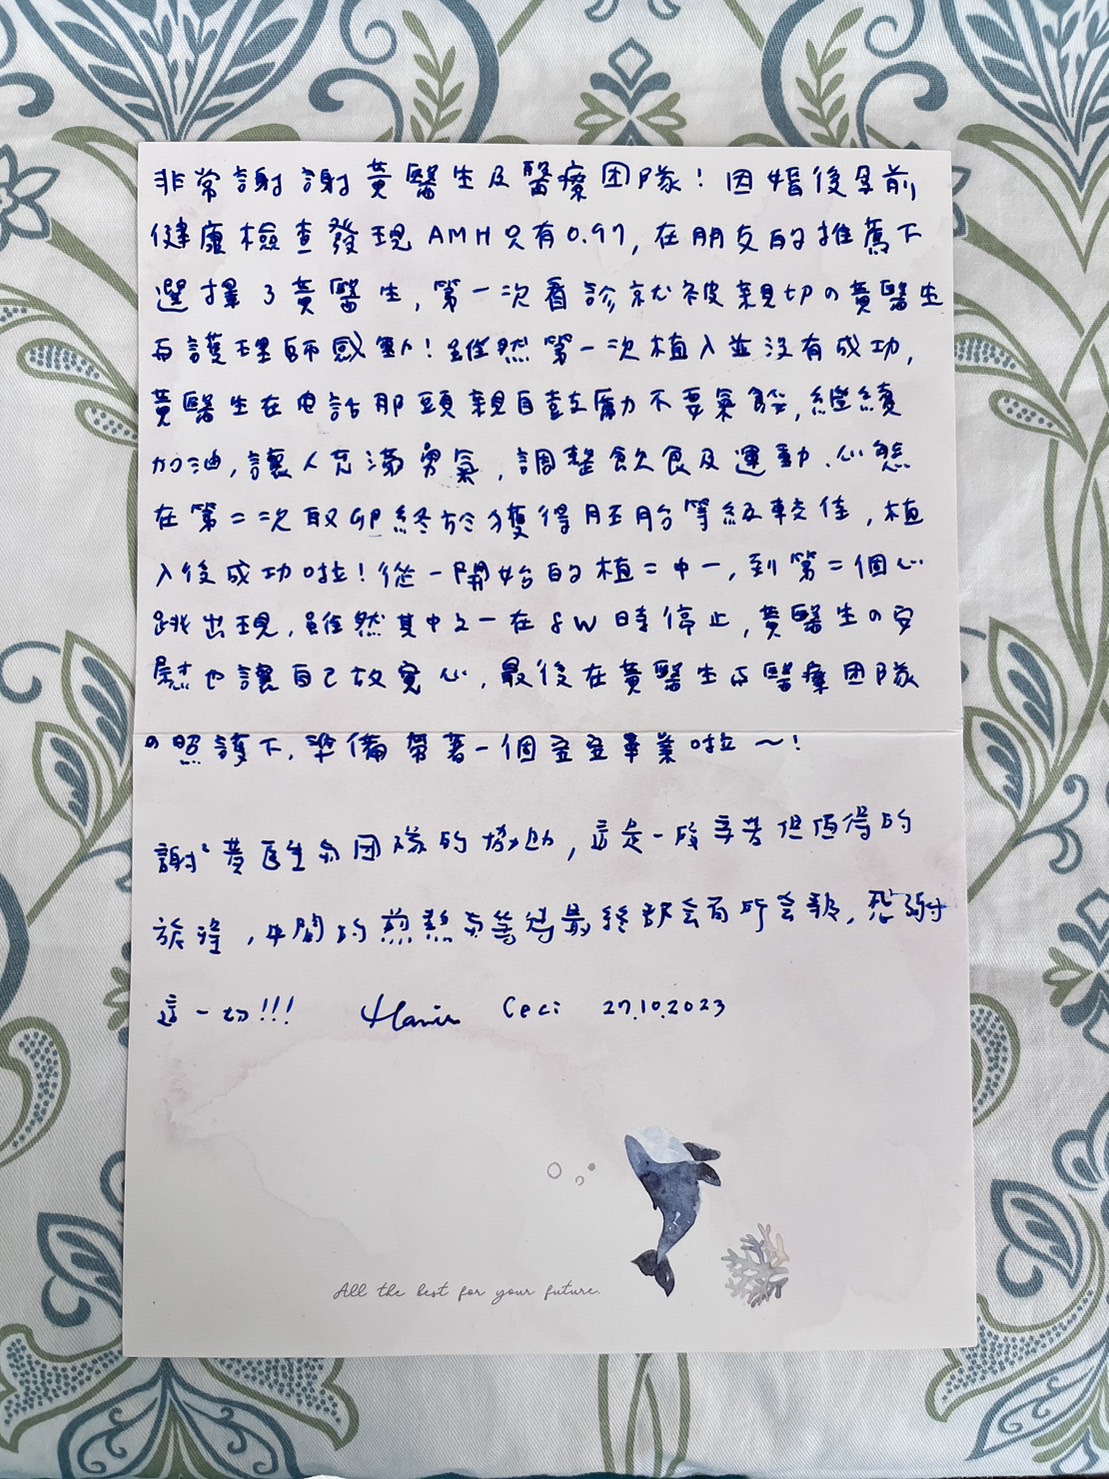 非常謝謝黃醫生及醫療团隊！因婚後孕前
健康檢查發現AMH只有0.97，在朋友的推薦下
選擇了黃醫生，第一次看診就被親切の黃醫生
与護理師感動！雖然第一次植入並沒有成功，
黃醫生在电話那頭親自鼓勵不要氣餒，繼續
加油，讓人充滿勇氣，調整飲食及運動、心態
在第二次取卵終於獲得胚胎等級較佳，植
入後成功啦！從一開始的植二中一，到第二個心
跳出現，雖然其中之一在8W時停止，黃醫生の安
慰也讓自己放寬心，最後在黃醫生与醫療团隊
の照護下，準備帶著一個宝宝畢業啦～！
謝謝黃医生与团隊的協助，這是一段辛苦但值得的
旅程，中間的煎熬与等待最終都会有所会報，感謝
這一切!!! Ceci 27.10.2023
All the best for your future.